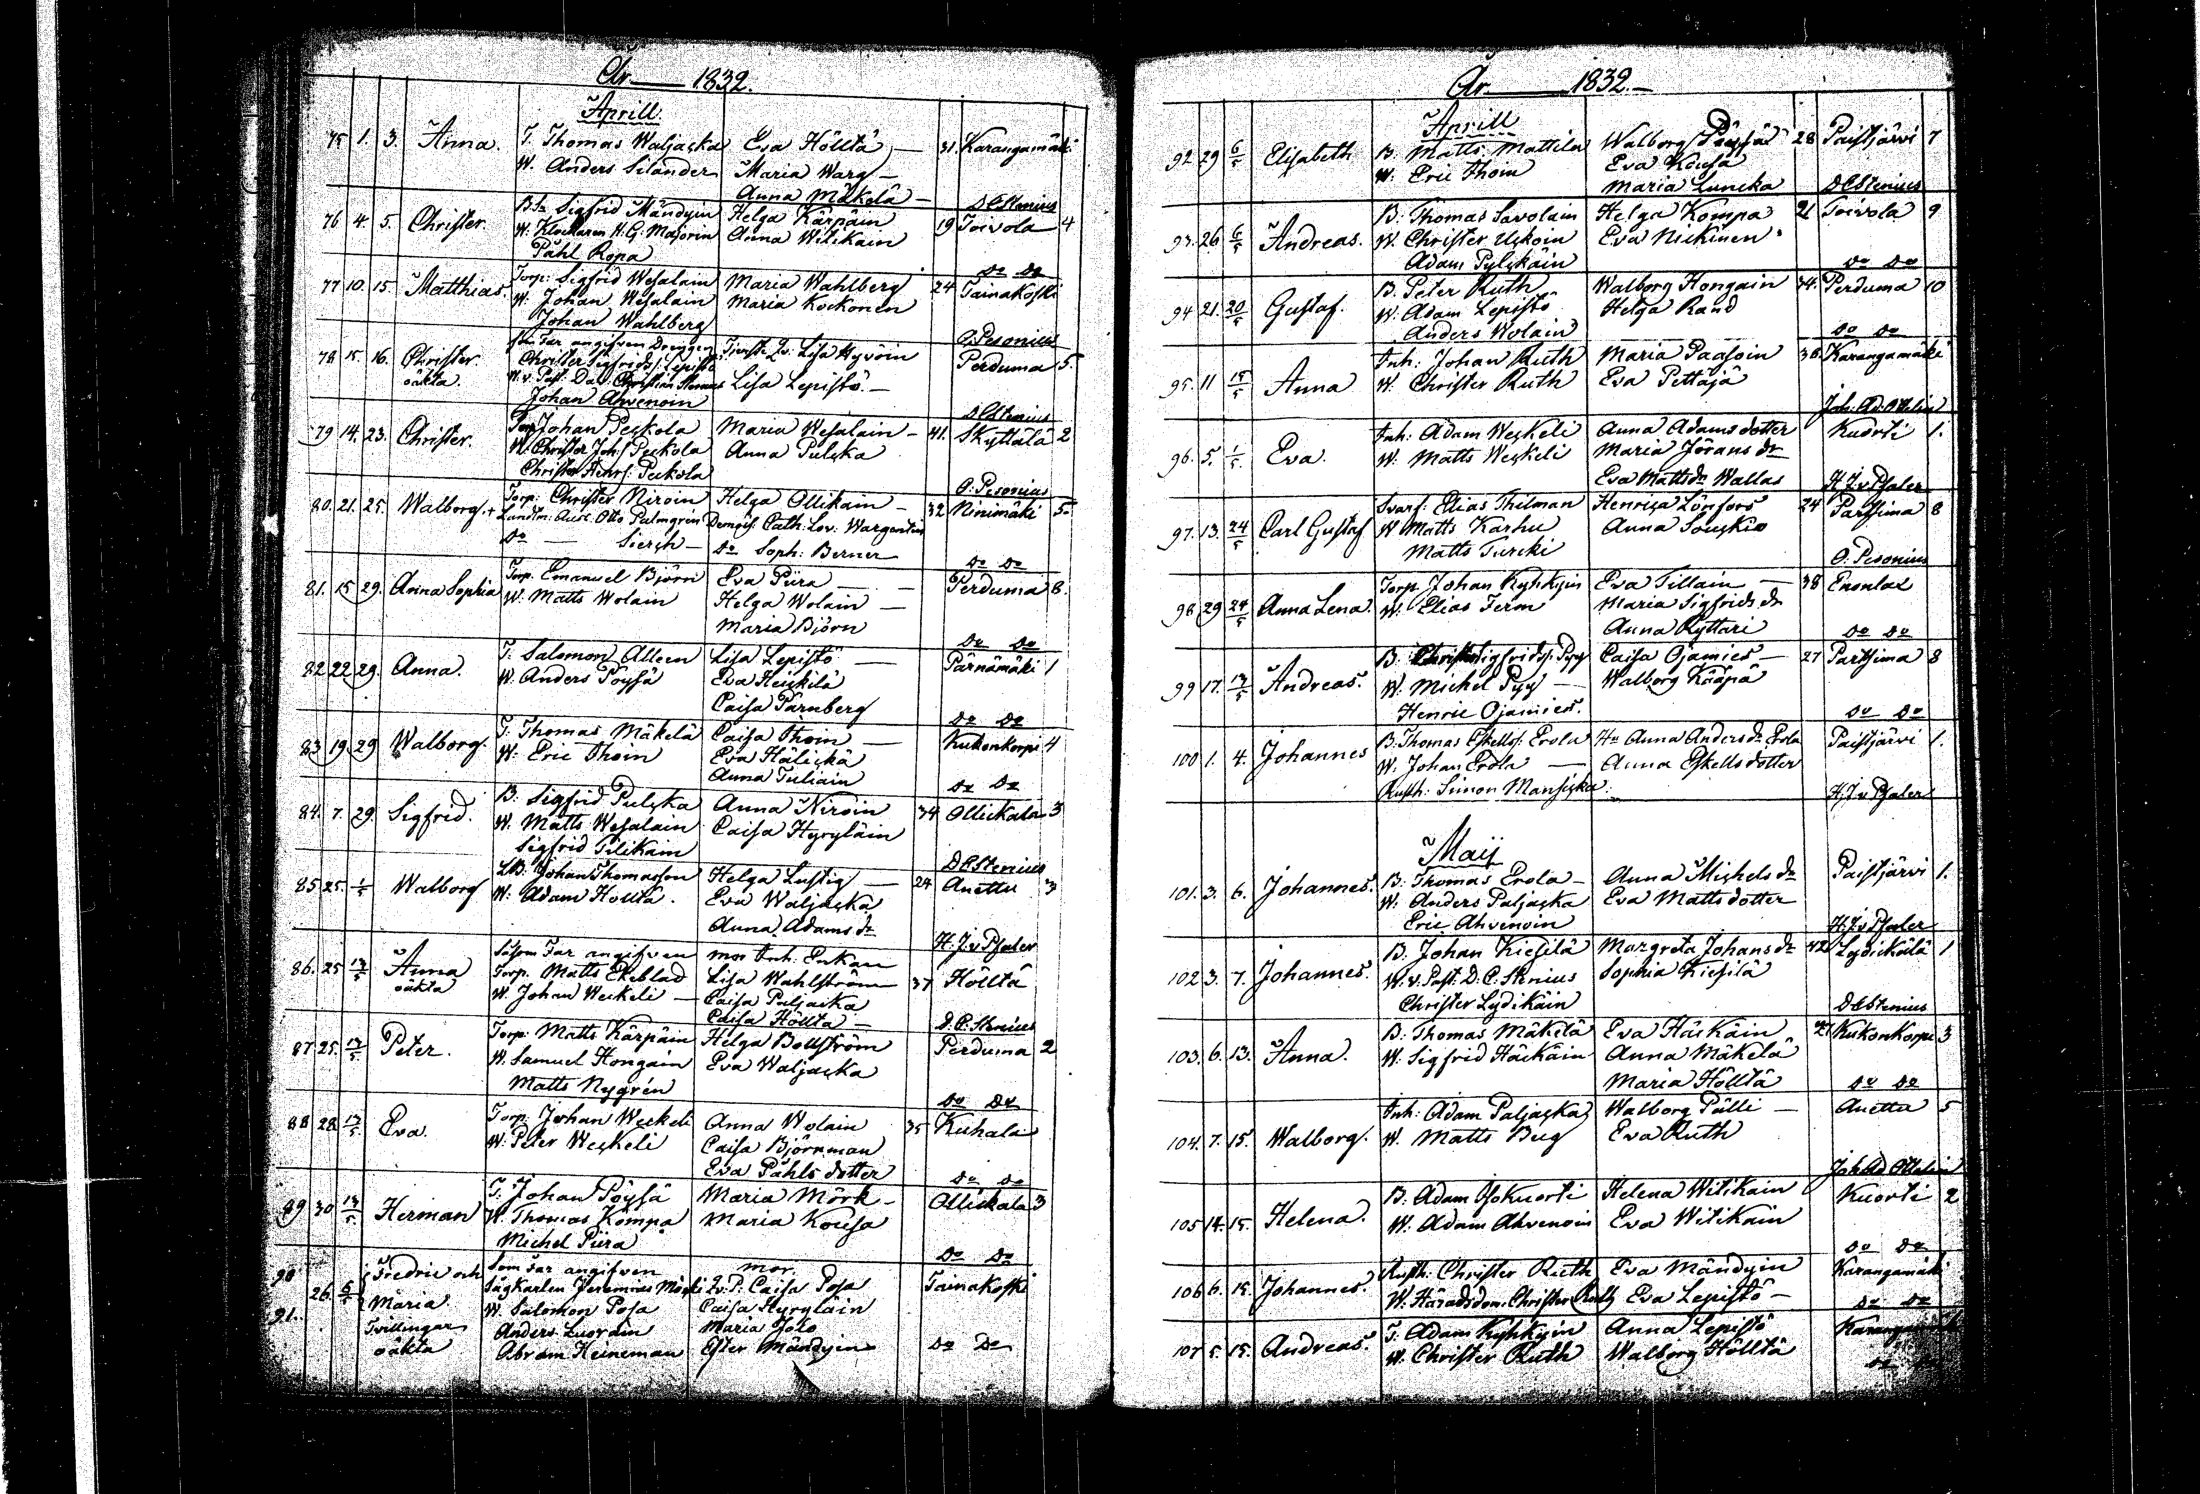 År 1832.
Aprill.
75 1. 3. Anna. T. Thomas Waljacka Eva Hölltä 31. Karangamäki
W. Anders Silander Maria Warg
Anna Mäkelä DCStenius
76 4. 5. Christer. Sigfrid Mändyin Helga Kärpäin 19 Toivola 4
W. Klockaren H. G. Majorin Anna Witikain
Påhl Ropa Do Do
77 10. 15 Matthias. Torp: Sigfrid Wesalain Maria Wahlberg 24 Tainakoski
W. Johan Wesalain Maria Kockonen
Johan Wahlberg O. Pesonius
78 15. 16. Christer. Far angifven Drengen Lisa Hyvöin Perduma 5.
oäkta. Christer Sigfridss: Lepistö
W. v. Past: Dav: Christian Stenius Lisa Lepistö.
Johan Ahvenoin DCStenius
79 14. 23. Christer. Torp Johan Peckola Maria Wesalain 41. Skyttälä 2
W. Christer Joh:s Peckola Anna Pulcka
Christer Henrs: Peckola O. Pesonius
80. 21. 25. Walborg. + Torp: Christer Niroin Helga Ollikain 32 Ninimäki 5.
Landtm: Ausc: Otto Palmgrén Demois: Cath: Lov: Wargentin
Do Do Soph: Berner Do Do
81. 15 29. Anna Sophia Torp. Emanuel Björn Eva Piira Perduma 8.
W. Matts Wolain Helga Wolain
Maria Björn Do Do
82 22 29. Anna. T. Salomon Alleen Lisa Lepistö Pärnämäki 1
W. Anders Pöysä Eva Heickilä
Caisa Parnberg Do Do
83 19 29 Walborg. T. Thomas Mäkelä Caisa Thoin Kukonkorpi 4
W. Eric Thoin Eva Häckä
Anna Tuliain Do Do
84. 7. 29. Sigfrid. B. Sigfrid Pulcka Anna Niroin 34 Ollickala 3
W. Matts Wesalain Caisa Hyryläin
Sigfrid Tilikain DCStenius
85 25. 1/5 Walborg Johan Thomasson Helga Lustig 24 Anettu 3
W. Adam Hölltä. Eva Waljacka
Anna Adams dr H. J. v. Pfaler
86. 25 13/5 Anna Såsom Far angifven mor Inh. Enkan
oäkta Torp. Matts Ekeblad Lisa Wahlström 37 Hölltä
W. Johan Weckeli Caisa Paljacka
Caisa Hölltä D. C. Stenius
87. 25. 13/5 Peter. Torp: Matts Kärpäin Helga Bollström Perduma 2
W. Samuel Hongain Eva Waljacka
Matts Nygrén Do Do
88 28 13/5 Eva. Torp: Johan Weckeli Anna Wolain 35 Kuhala
W. Peter Weckeli Caisa Björnman
Eva Påhls dotter Do Do
89 30 13/5 Herman T. Johan Pöysä Maria Mörk Ollickala 3
W. Thomas Kompa Maria Kousa
Michel Piira Do Do
90 Fredric och Som Far angifven mor
91. 26. 6/5 Maria Sågkarlen Jeremias Caisa Posa Tainakoski
W. Salomon Posa Caisa Hyryläin
Tvillingar Anders Luorain Maria Jolo
oäkta Abram Heineman Ester Mändyin Do Do
År 1832.
Aprill
92 29 6/5 Elisabeth B. Matts Mattila Walborg Pöysä 28 Paistjärvi 7
W. Eric Thoin Eva Kousa
Maria Luncka DCStenius
93. 26 6/5 Andreas. B. Thomas Savolain Helga Kompa 21 Toivola 9
W. Christer Uckoin Eva Nickinen
Adam Pylckäin Do Do
94 21. 20/5 Gustaf. B. Peter Ruth Walborg Hongain 34. Perduma 10
W. Adam Lepistö Helga Rand
Anders Wolain Do Do
95. 11 15/5 Anna Inh: Johan Ruth Maria Paasoin 36. Karangamäki
W. Christer Ruth Eva Pettäjä
Joh: Ad:
96. 5. 1/5. Eva. Inh: Adam Weckeli Anna Adamsdotter Kuorti 1.
W. Matts Weckeli Maria Jöransdr
Eva Mattsdr Wallas H. J. v. Pfaler
97. 13. 24/5 Carl Gustaf Svarf: Elias Thilman Henrica Lönfors 24 Partsima 8
W Matts Karhu Anna Souckio
Matts Turcki O. Pesonius
98 29 24/5 Anna Lena. Torp Johan Kyhkyin Eva Tillain 38 Enonlax
W. Elias Ferm Maria Sigfrids dr
Anna Kyttäri Do Do
99 17. 13/5 Andreas. B. Christer Sigfridss: Pyy Caisa Ojamies 27 Partsima 8
W. Michel Pyy Walborg Kääpä
Henric Ojamies. Do Do
100 1. 4. Johannes B. Thomas Eskells: Erola Hu Anna Andersdr Erola Paistjärvi 1.
W. Johan Erola Anna Eskellsdotter
Rusth: Simon Mansicka H. J. v. Pfaler
Maij
101. 3. 6. Johannes. B. Thomas Erola Anna Michelsdr Paistjärvi 1.
W. Anders Paljacka Eva Mattsdotter
Eric Ahvenoin H. J. v. Pfaler
102 3. 7. Johannes. B. Johan Kiesilä Margreta Johansdr 42 Lydickälä 1
W. v. Past. D. C. Stenius Sophia Kiesilä
Christer Lydikäin DCStenius
103. 6. 13. Anna. B. Thomas Mäkelä Eva Häckäin 27 Kukonkorpi 3
W. Sigfrid Häckäin Anna Mäkelä
Maria Hölltä Do Do
104. 7. 15. Walborg. Inh: Adam Paljacka Walborg Pälli Anettu 5
W. Matts Bug Eva Ruth
Joh Ad
105 14. 15. Helena. B. Adam Isokuorti Helena Witikain Kuorti 2
W. Adam Ahvenoin Eva Witikain
Do Do
106 6. 15. Johannes. Rusth: Christer Ruth Eva Mändyin Karangamäki
W. Häradsdom. Christer Ruth Eva Lepistö Do Do
107 5. 15. Andreas. T. Adam Kyhkyin Anna Lepistö
W. Christer Ruth Walborg Hölltä